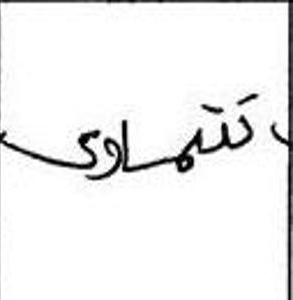 تتهاوى